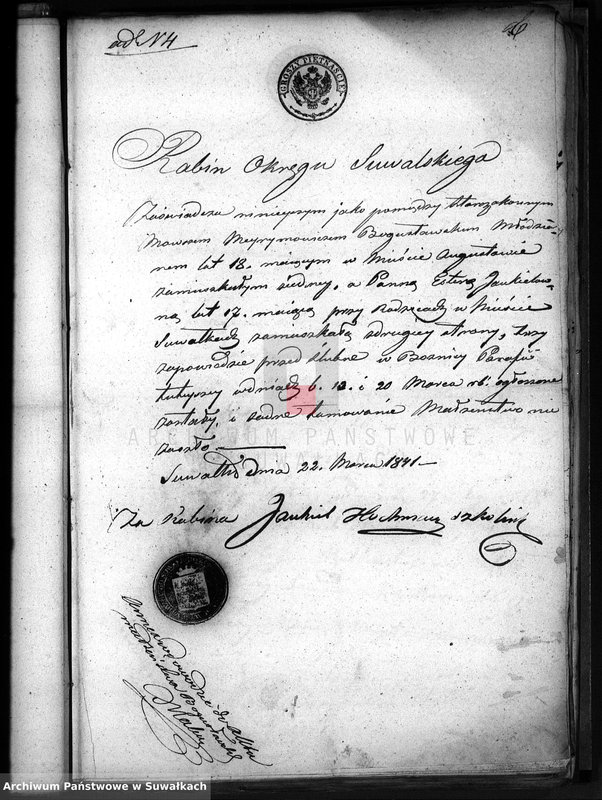 ad N 4
GROSZY PIĘTNAŚCIE
Rabin Okręgu Suwalskiego
Zaświadcza niniejszym jako pomiędzy Starozakonnym
Mowszem Meyrymowiczem Bogusławskim Młodzie-
nem lat 18. mającym w Mieście Augustowie
zamieszkałym z iedney, a Panną Esterą Jankielow-
ną lat 17. maiącą przy Rodzicach w Mieście
Suwałkach zamieszkałą z drugiey strony, trzy
zapowiedzie przed ślubne w Bożnicy Parafii
tuteyszey w dniach 6. 13. i 20 Marca rb. ogłoszone
zostały, i żadne tamowanie Małżeństwa nie
zaszło
Suwałki dnia 22. Marca 1841
Za Rabina Jankiel szkolnik
ARCHIWUM PAŃSTWOWE
W SUWAŁKACH
do aktu
małżeństwa Bogusławski
Archiwum Państwowe w Suwałkach